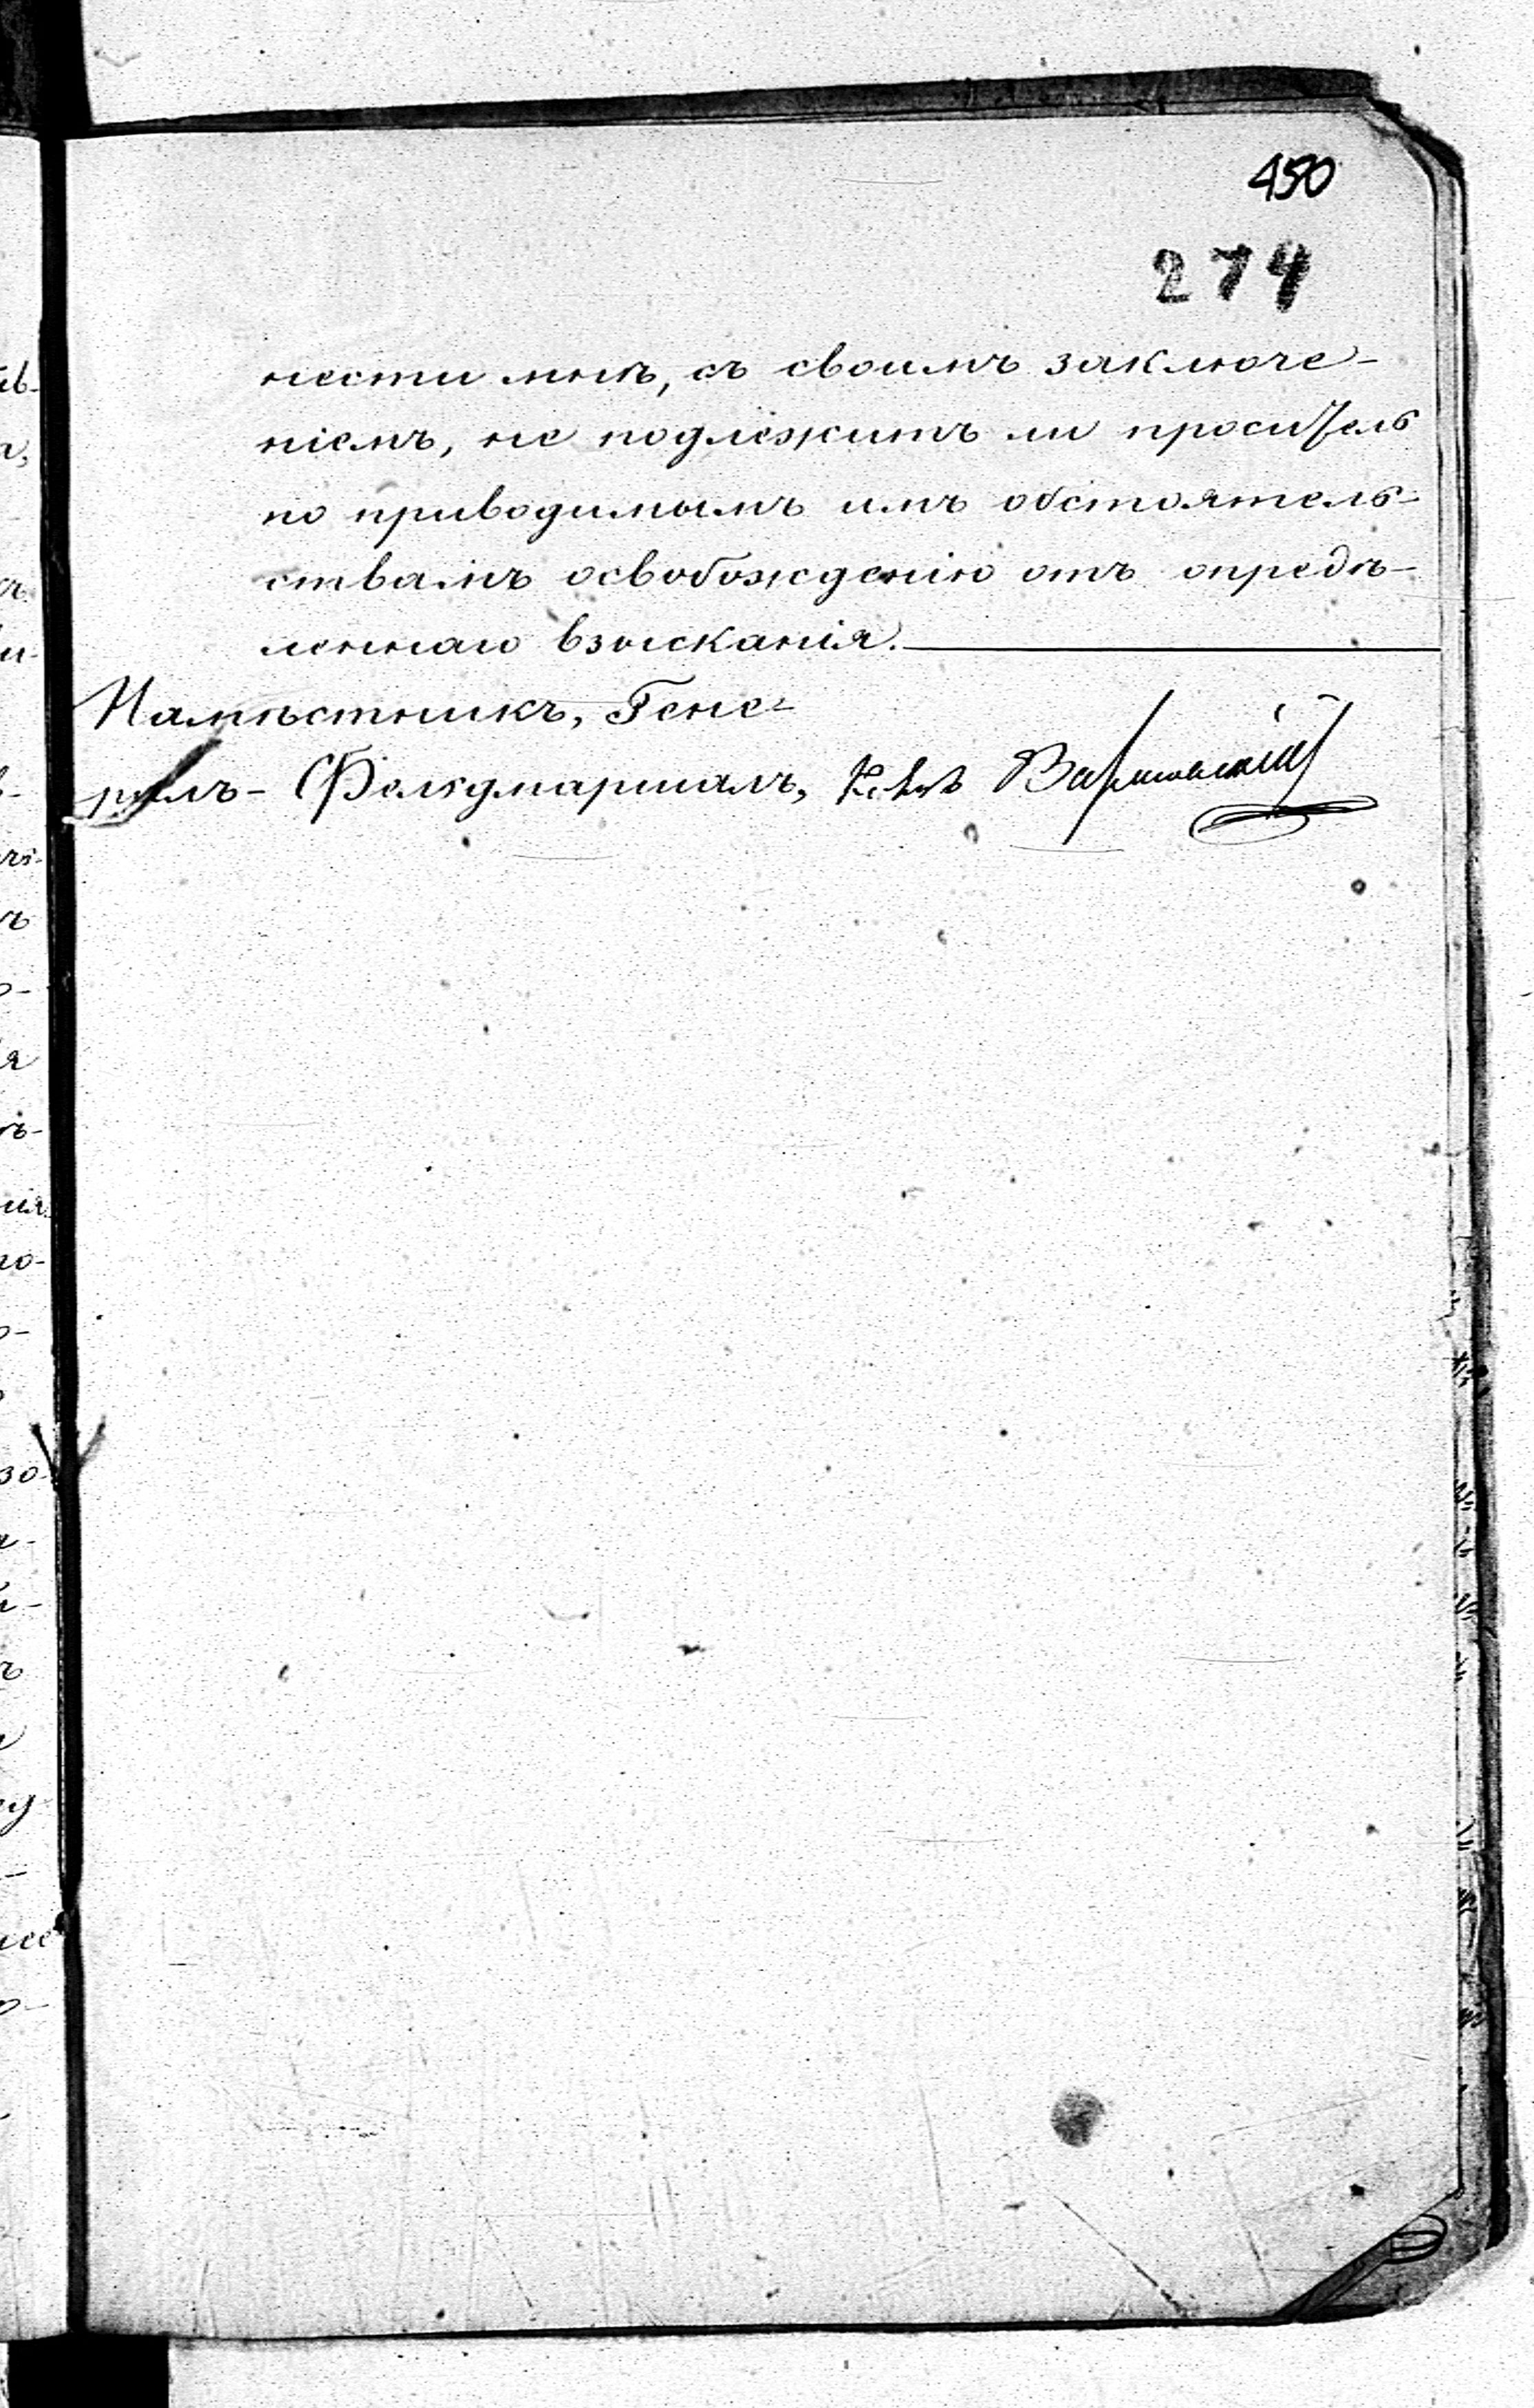 450
274
нести мнѣ, съ своимъ заключе-
ніемъ, не подлежитъ ли проситель
по приводимымъ имъ обстоятель-
ствамъ освобожденію отъ опредѣ-
леннаго взысканія.
Намѣстникъ, Гене-
ралъ-Фельдмаршалъ, Князь Варшавскій